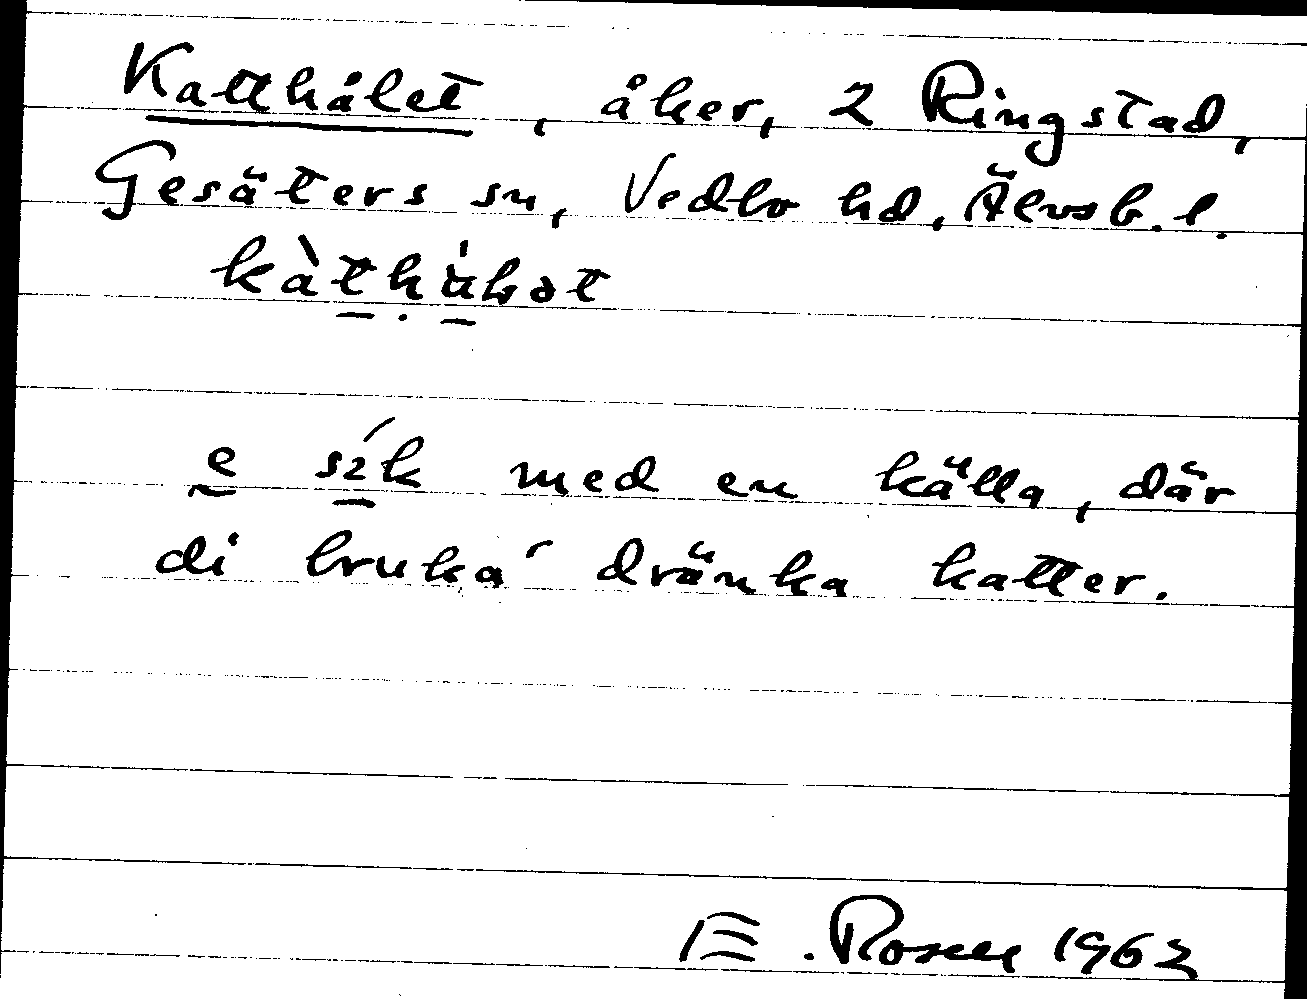 Katthålet, åker, 2 Ringstad,
Gesäters sn, Vedbo hd, Älvsb. l.
e sık med en källa, där
di bruka' dränka katter.
E. Rosell 1962